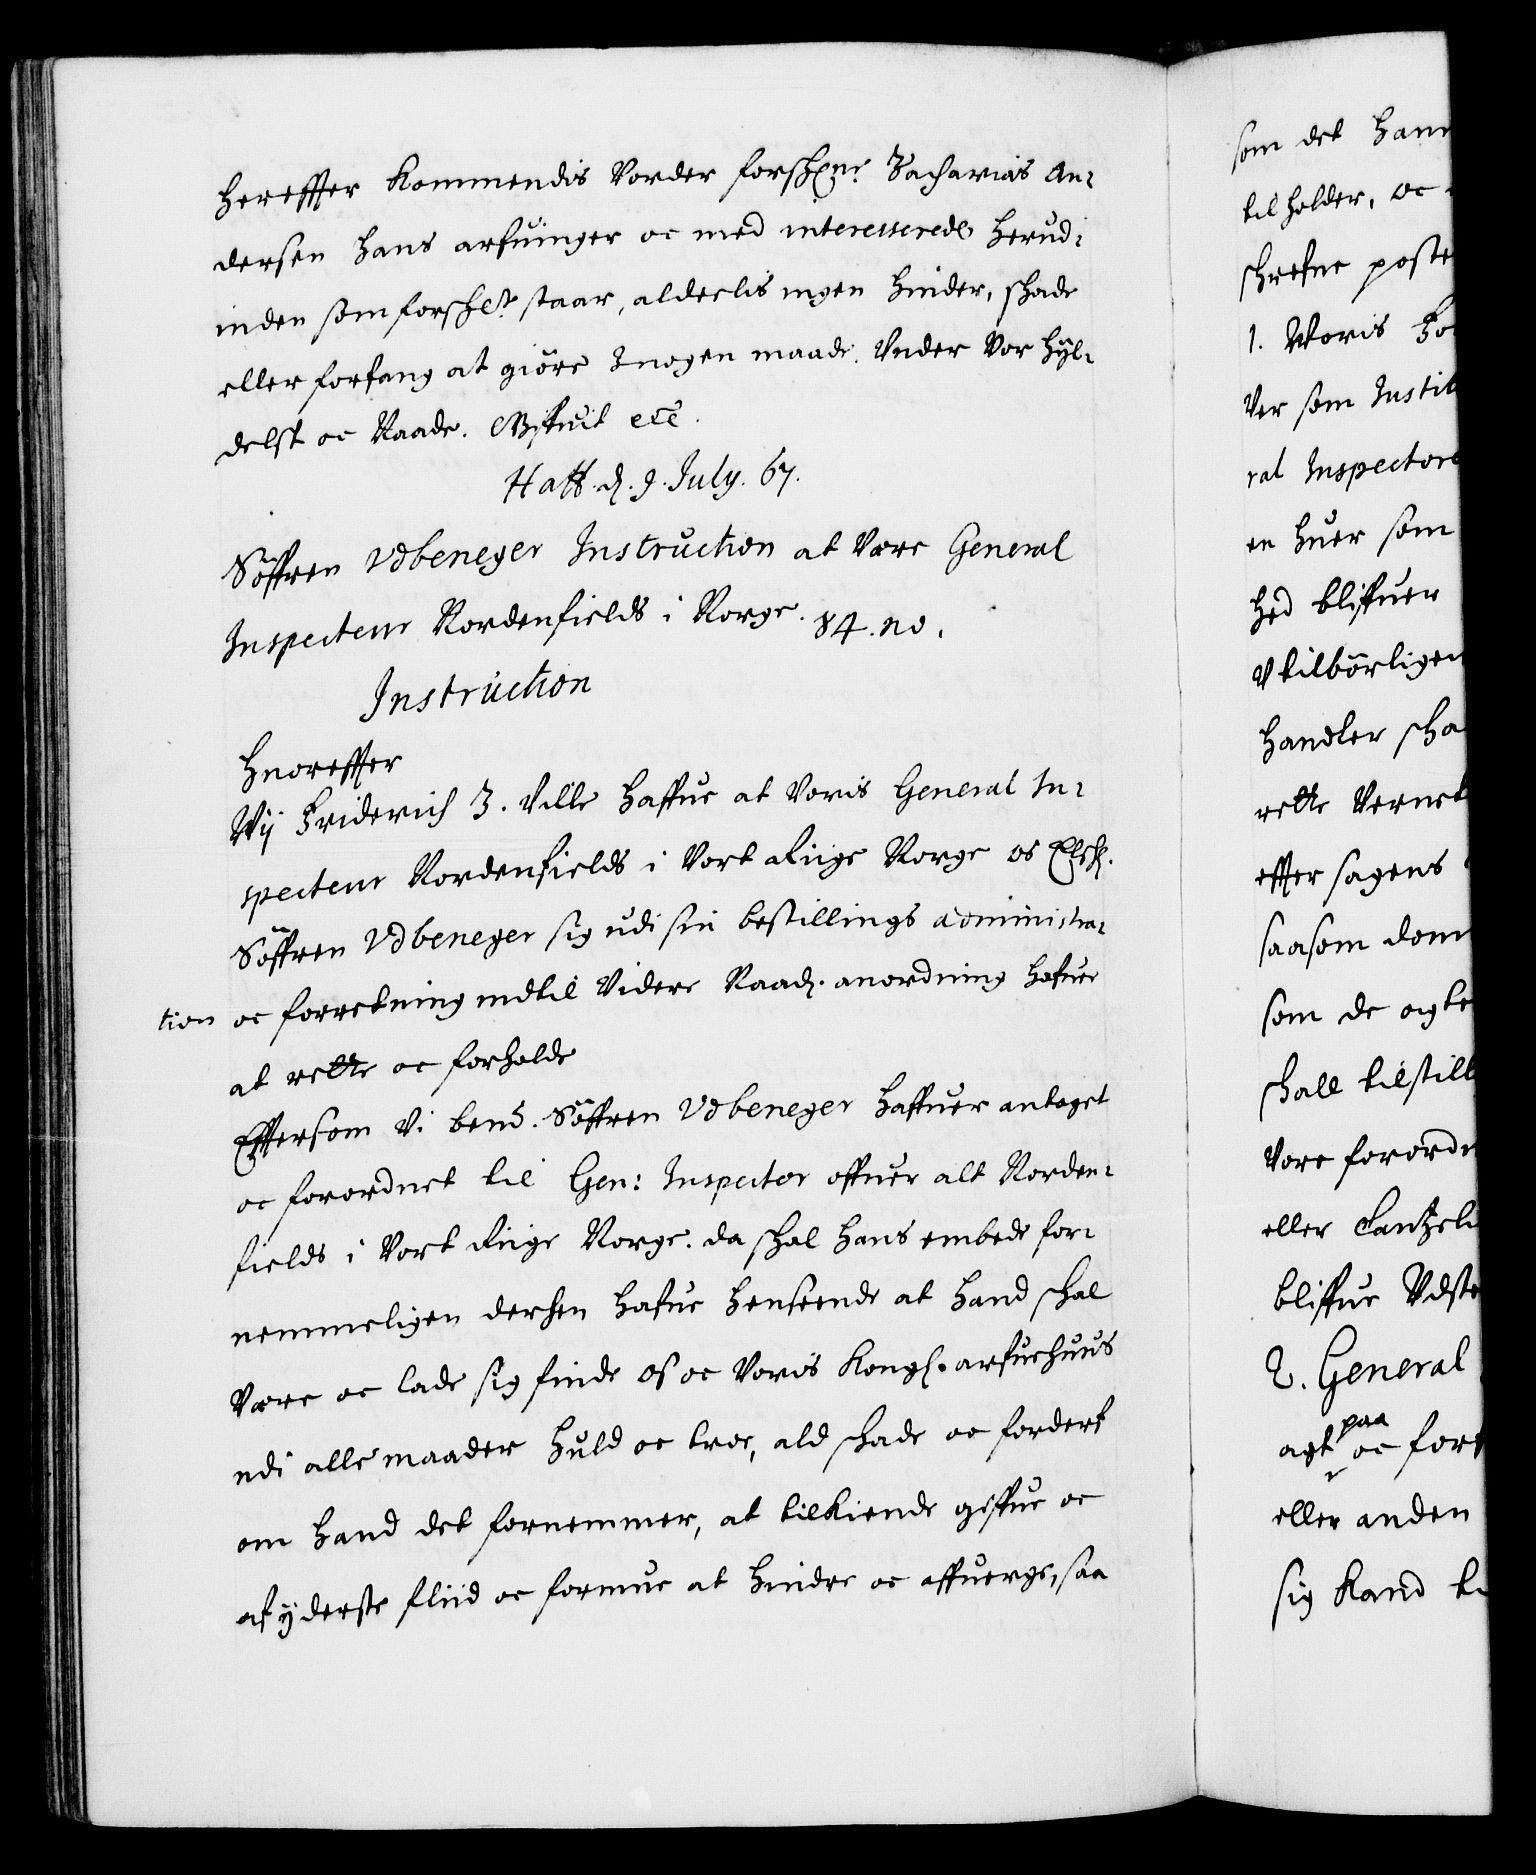 hereffter kommendis vorder forschne Zacharias An-
dersen hans arfuinger oc med interesserede herud-
inden som forschet staar, alderlis ingen hinder, schade
eller forfang at giöre i nogen maade. Vnder vor hyl-
delst oc Naade. Giffuit etc.
Haff. d. 9. July. 67.
Söffren Vdbeneger Instruction at være General
Inspecteur Nordenfields i Norge. 84. no.
Instruction
Huoreffter
Wij Friderich 3. ville haffue at voris General In-
specteur Nordenfields i vort Rige Norge os Elsk.
Söffren Vdbeneger sig udi sin bestillings administra-
tion oc forretning indtil videre Naad. anordning hafue
at rette oc forholde
Efftersom vi bend. Söffren Vdbeneger haffuer antaget
oc forordnet til Gen: Inspector offuer alt Norden-
fields i vort Rige Norge. da schal hans embede for-
nemmeligen derhen hafue henseende at hand schal
være oc lade sig finde os oc voris Kongl. arfuehuus
udi alle maader huld oc troe, ald schade oc fordert
om hand det fornemmer, at tilkiende giffue oc
af yderste fliid oc formue at hindre oc affuerge, saa
som det hann
til holder, oc
schrefne poste
1. Woris Fo
ver som Justit
ral Inspectore
en huer som
hed bliffuer
Vtilbörligen
handler scha
rette vernet
effter sagens
saasom dom
som de agte
schall tilstill
vore forordn
eller Cantzeli
bliffue Vdste
2. General
agt paa oc fort
eller anden
sig kand